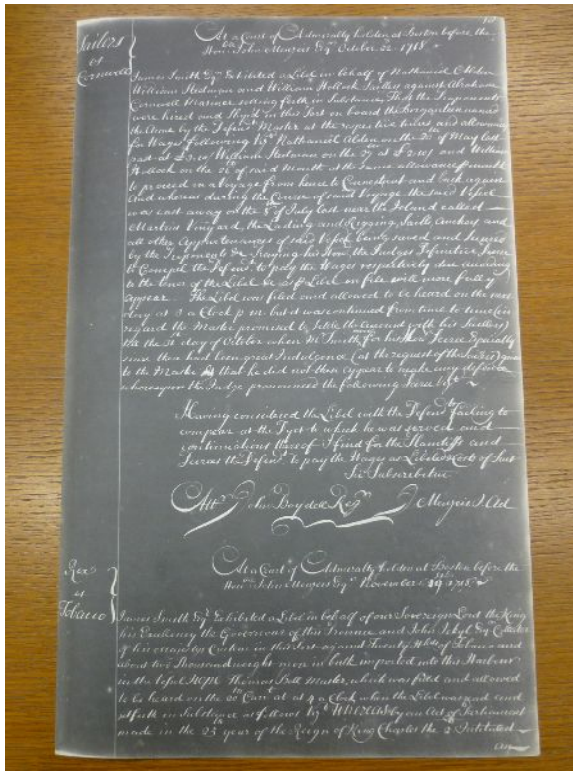 Sailors
vs
Cornwell
At a Court of Admiralty holden at Boston before the
Honble. John Menzies Esqr. October 22 1718
James Smith Esqr. Exhibited a Libel in behalf of Nathaniel Alden
William Stedman and William Hollock Sailors against Abraham
Cornwell Marriner setting forth in Substance That the Proponents
were hired and Shipt in this Port on board the Brigantine named
the Anne by the Defendt. Master at the respective times and allowances
for Wages following vizt. Nathaniel Alden on the of May last
past at William Stedman on the at and William
Hollock on the of said Month at the same allowance month
to proceed in a Voyage from hence to Connecticut and back again
And whereas during the Course of said Voyage the said Vessel
was cast away on the 5th of July last near the Island called
Martins Vinyard, the Lading and Rigging, Sails, Anchors and
all other Appurtenances of said Vessel being saved and
by the Proponents &c Praying his Honr. the Judges Definitive
to Compell the Defendt. to pay the Wages respectively due according
to the tenor of the Libel &c as Libel on file will more fully
appear. The Libel was filed and allowed to be heard on the
day at 3 a Clock p m but it was continued from time to time (in
regard the Master promised to Settle the accounts with his Saillors)
till the day of October when Mr. Smith for his Decree Especially
since there had been great Indulgence (at the request of the) given
to the Master & that he did not then appear to make any defence
whereupon the Judge pronounced the following Decree
Having considered the Libel with the Defendts. failing to
compear at the Dyet to which he was served and
continuations thereof I find for the Plaintiffs and
Decree the Defendt. to pay the Wages as Libeled & Costs of Suit
Sic Subscribitur
Attr. John Boydell Regr. J Menzeis J. Ad
Rex
vs
Tobacco
At a Court of Admiralty holden at Boston before the
Honble. John Menzies Esqr. November 19 1718
James Smith Esqr. Exhibited a Libel in behalf of our Sovereign Lord the King
his Excellency the Governour of this Province and John Jekyl Esqr. Collector
of his Majestys Customs in this Port against Twenty Hhds of Tobacco and
about two Thousand weight more in bulk imported into this Harbour
in the Vessel HOPE Thomas Bell Master, which was filed and allowed
to be heard on the 20th Currt. at 4 a Clock when the Libel was read and
setforth in Substance as follows vizt. WHEREAS by an Act of Parliament
made in the 25 year of the Reign of King Charles the 2d. Intituled